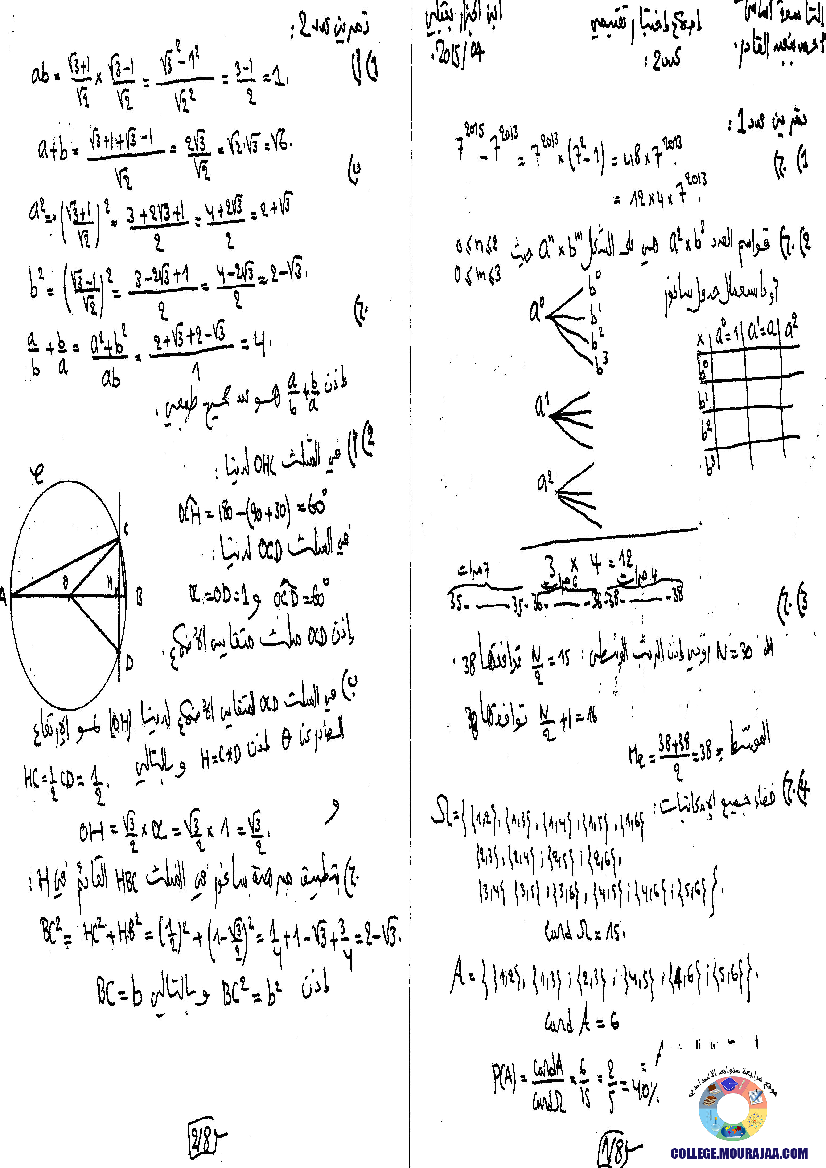 التاسعة أساسي
إصلاح اختبار تقييمي
عدد 2:
2015/04
تمرين عدد 1:
1) ج.
7^2015 - 7^2013 = 7^2013 × (7^2 - 1) = 48 × 7^2013.
= 12 × 4 × 7^2013
2) ج. قواسم العدد a^2 × b^3 هي على الشكل a^n × b^m حيث
0 ≤ n ≤ 2
0 ≤ m ≤ 3
a^0 b^0 b^1 b^2 b^3
a^1
a^2
× | a^0=1 | a^1=a | a^2
b^0
b^1
b^2
b^3
3 × 4 = 12
3) ج.
35 - ... - 35 - 36 - ... - 36 - 38 - ... - 38
N = 30
N/2 = 15 توافقها 38
N/2 + 1 = 16 توافقها 38
الموسط = Me = (38+38)/2 = 38
4) ج. فضاء جميع الإمكانيات:
Ω = { {1,2}, {1,3}, {1,4}; {1,5}, {1,6}
{2,3}, {2,4}; {2,5}; {2,6},
{3,4} {3,5}; {3,6}, {4,5}; {4,6}; {5,6} }.
Card Ω = 15.
A = { {1,2}, {1,3}; {2,3}; {4,5}; {4,6}; {5,6} }.
Card A = 6
P(A) = CardA/CardΩ = 6/15 = 2/5 = 40%
1/8
تمرين عدد 2:
1) أ)
ab = (√3+1)/√2 × (√3-1)/√2 = (√3^2 - 1^2)/√2^2 = (3-1)/2 = 1.
a+b = (√3+1+√3-1)/√2 = 2√3/√2 = √2·√3 = √6.
ب)
a^2 = ((√3+1)/√2)^2 = (3+2√3+1)/2 = (4+2√3)/2 = 2+√3
b^2 = ((√3-1)/√2)^2 = (3-2√3+1)/2 = (4-2√3)/2 = 2-√3.
ج.
a/b + b/a = (a^2+b^2)/ab = (2+√3+2-√3)/1 = 4.
إذن a/b + b/a هو عدد صحيح طبيعي.
2) أ) في المثلث OHC لدينا:
OCH = 180-(90+30) = 60°
في المثلث OCD لدينا:
OC = OD = 1 و OCD = 60°
إذن OCD مثلث متقايس الأضلاع.
ب) في المثلث OCD المتقايس الأضلاع لدينا [OH] هو الارتفاع
الصادر من O إذن H = C*D وبالتالي HC = 1/2 CD = 1/2.
و
OH = √3/2 × OC = √3/2 × 1 = √3/2.
ج) بتطبيق مبرهنة بيتاغور في المثلث HBC القائم في H:
BC^2 = HC^2 + HB^2 = (1/2)^2 + (1-√3/2)^2 = 1/4 + 1 - √3 + 3/4 = 2-√3.
إذن BC^2 = b^2 وبالتالي BC = b
C
A
O
H
B
D
2/8
موقع مراجعة
COLLEGE.MOURAJAA.COM